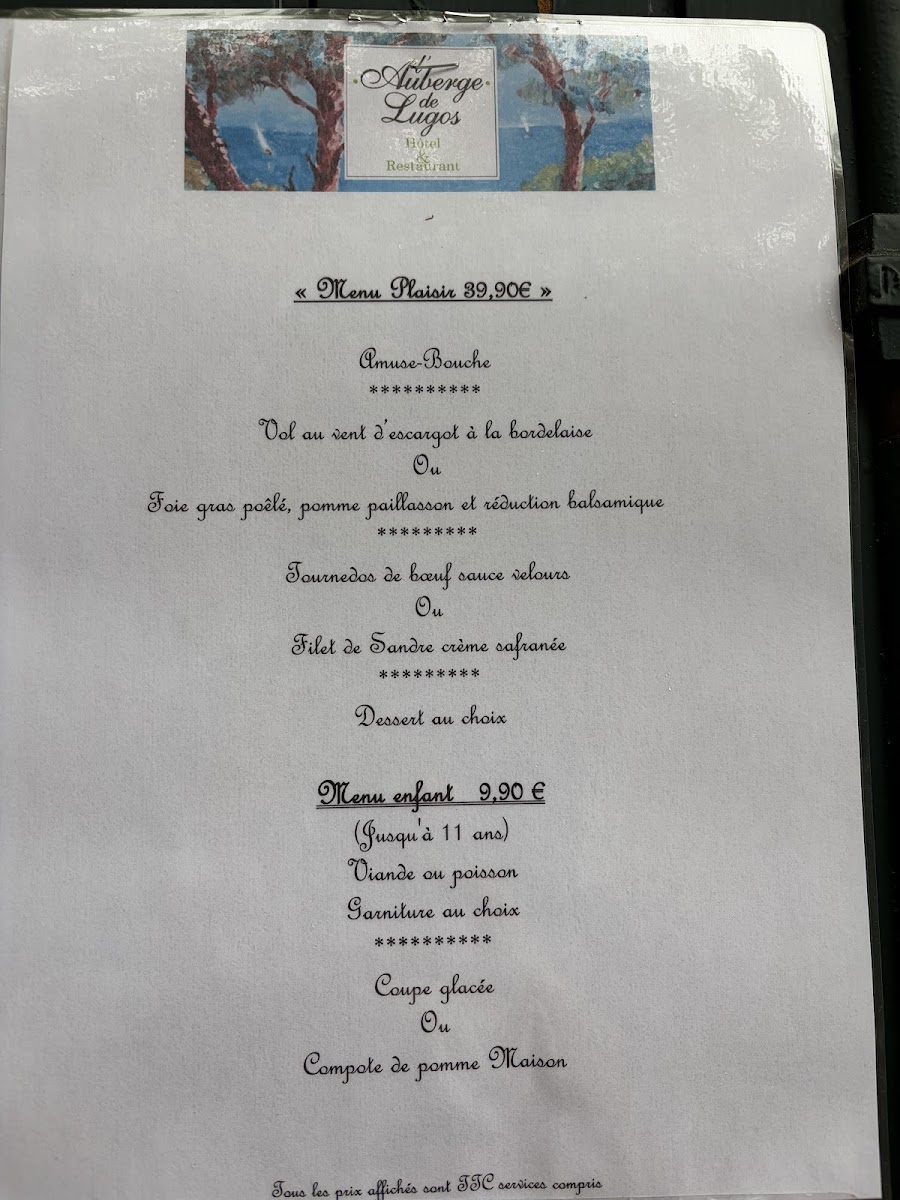 L'Auberge
de
Lugos
Hôtel
&
Restaurant
« Menu Plaisir 39,90€ »
Amuse-Bouche
**********
Vol au vent d'escargot à la bordelaise
Ou
Foie gras poêlé, pomme paillasson et réduction balsamique
*********
Tournedos de bœuf sauce velours
Ou
Filet de Sandre crème safranée
*********
Dessert au choix
Menu enfant 9,90 €
(Jusqu'à 11 ans)
Viande ou poisson
Garniture au choix
**********
Coupe glacée
Ou
Compote de pomme Maison
Tous les prix affichés sont TTC services compris